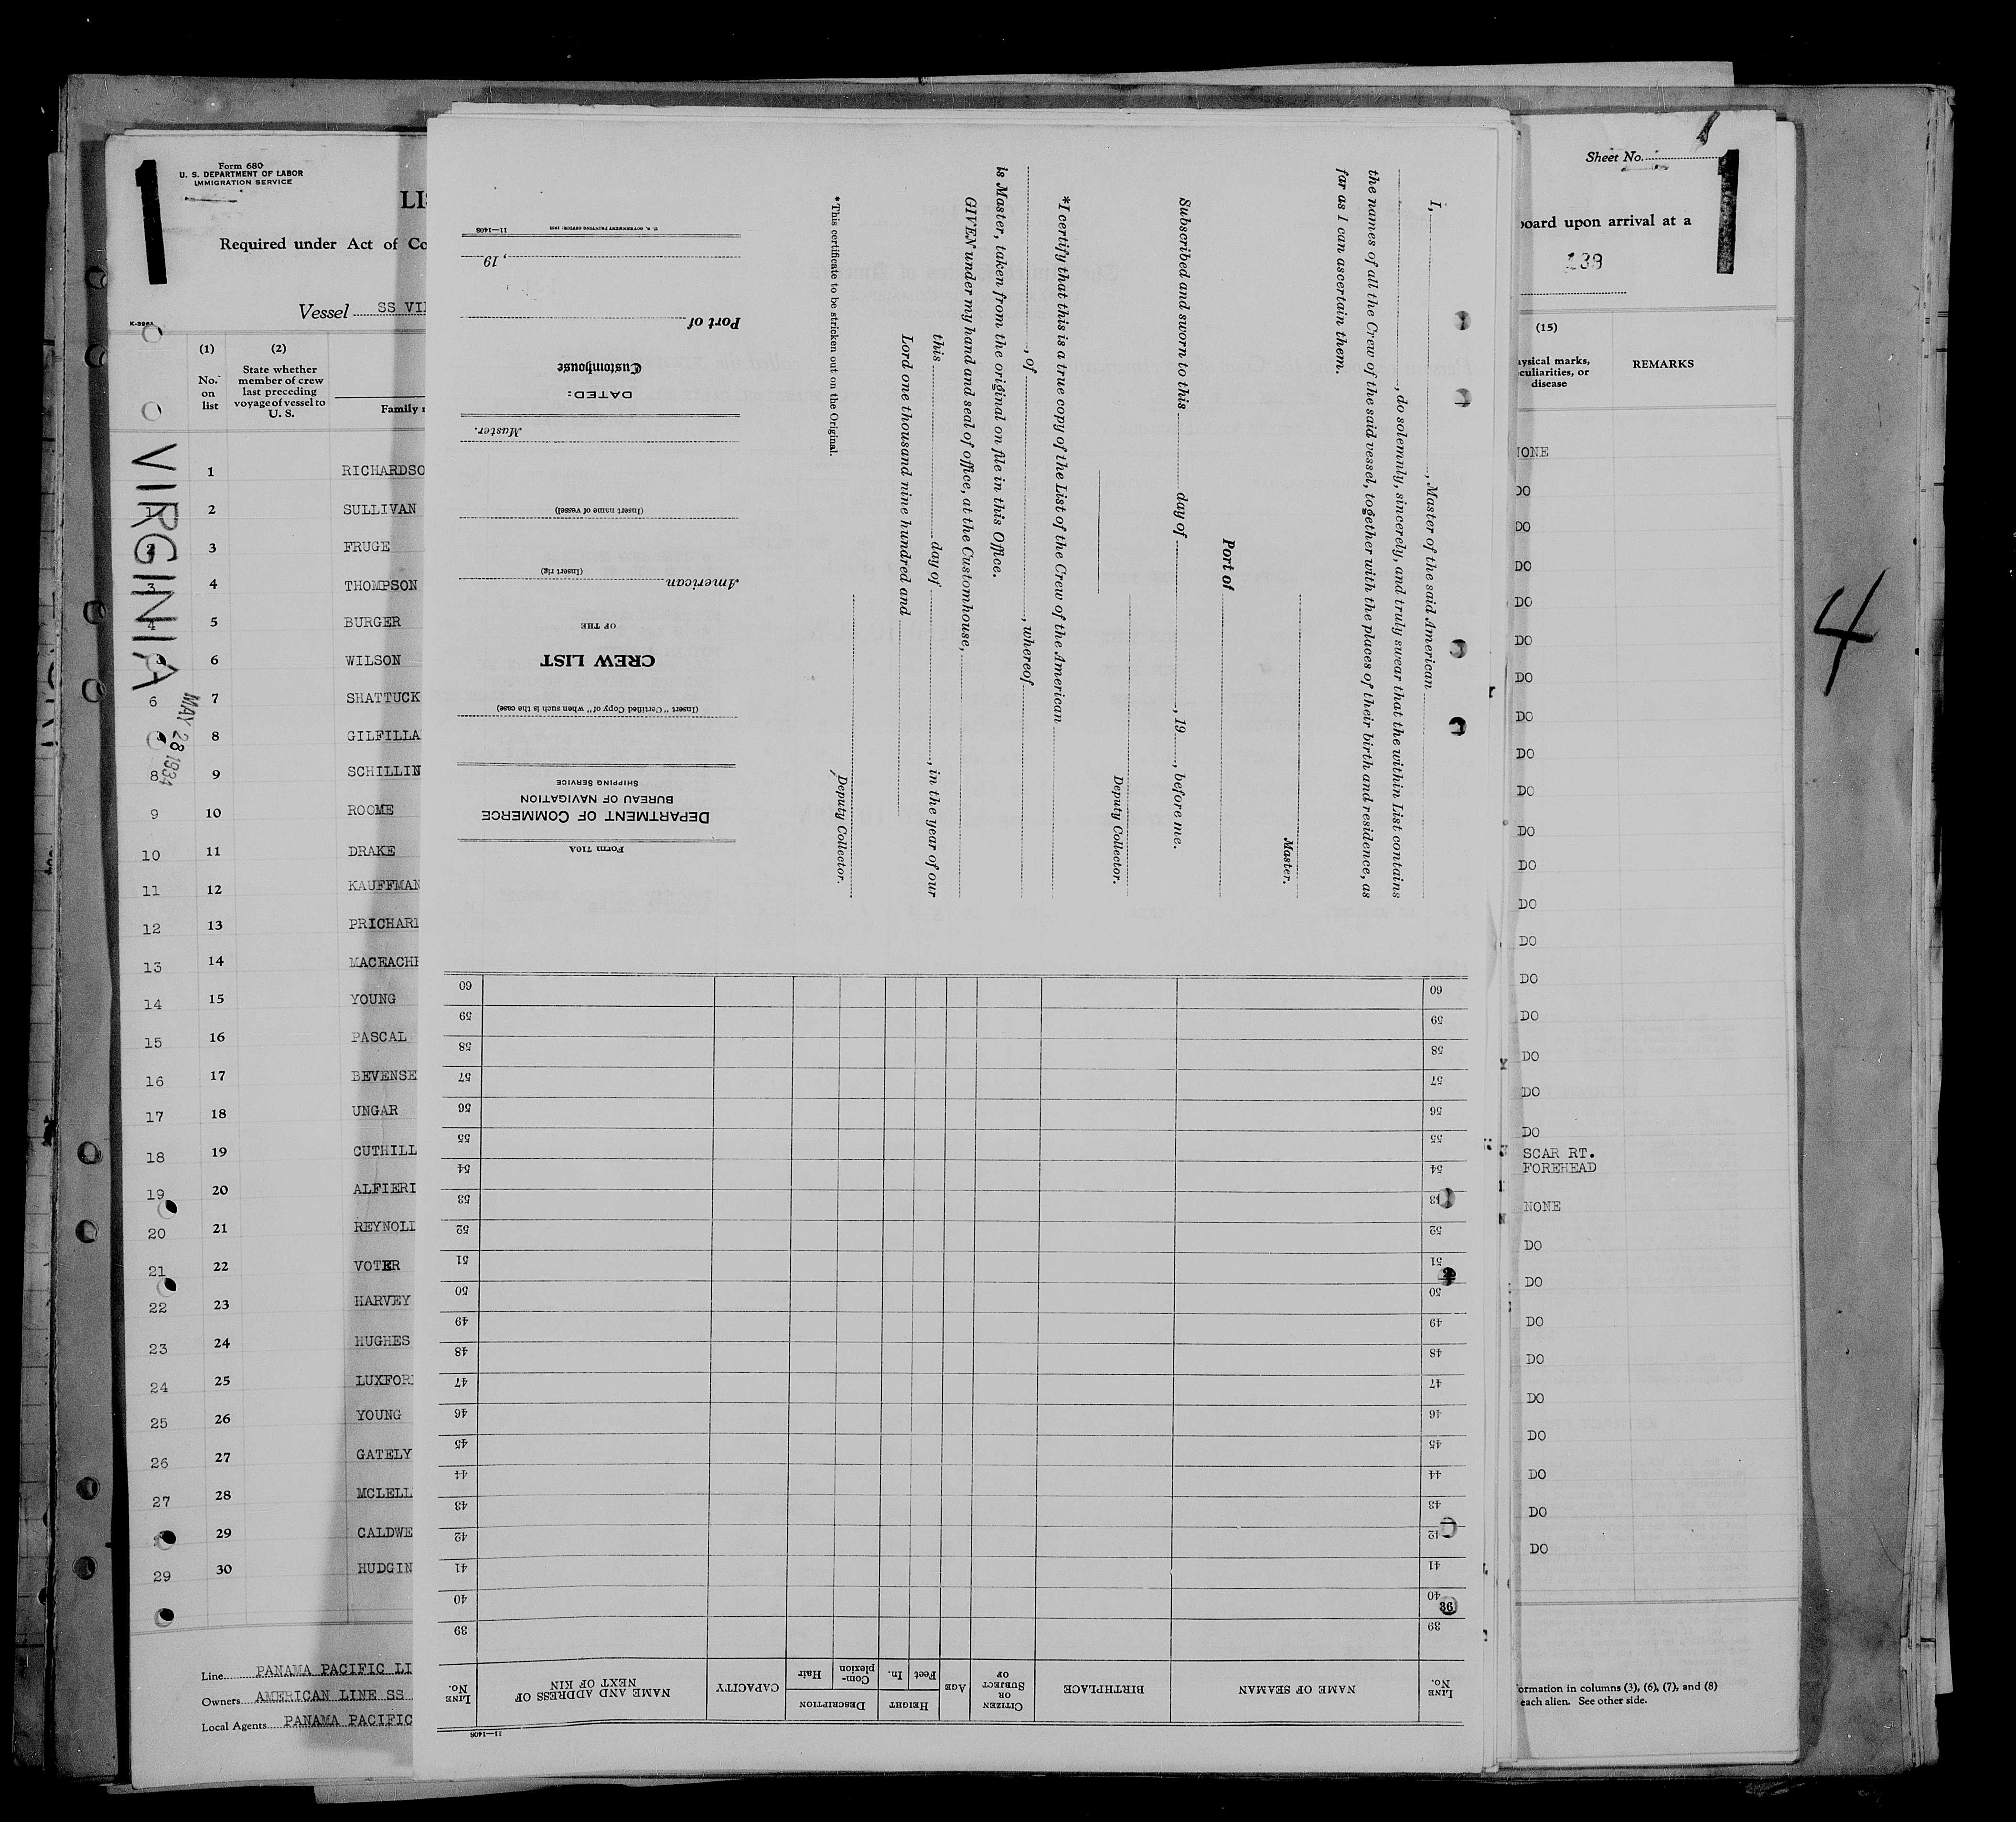 1
Form 680
U. S. DEPARTMENT OF LABOR
IMMIGRATION SERVICE
Required under Act of
Vessel SS
(1) No. on list
(2) State whether member of crew last preceding voyage of vessel to U. S.
Family
VIRGINIA
MAY 28 1934
1 RICHARDSO
1 2 SULLIVAN
2 3 FRUGE
3 4 THOMPSON
4 5 BURGER
6 WILSON
6 7 SHATTUCK
8 GILFILLA
8 9 SCHILLIN
9 10 ROOME
10 11 DRAKE
11 12 KAUFFMAN
12 13 PRICHARD
13 14 MACEACHE
14 15 YOUNG
15 16 PASCAL
16 17 BEVENSE
17 18 UNGAR
18 19 CUTHILL
19 20 ALFIERI
20 21 REYNOLD
21 22 VOTER
22 23 HARVEY
23 24 HUGHES
24 25 LUXFOR
25 26 YOUNG
26 27 GATELY
27 28 MCLELL
29 CALDWE
29 30 HUDGIN
Line PANAMA PACIFIC LI
Owners AMERICAN LINE SS
Local Agents PANAMA PACIFIC
Form 710A
DEPARTMENT OF COMMERCE
BUREAU OF NAVIGATION
SHIPPING SERVICE
(Insert "Certified Copy of" when such is the case)
CREW LIST
OF THE
American
(Insert rig)
(Insert name of vessel)
Master.
DATED:
Customhouse
Port of
, 19
11—1408
I, , Master of the said American
, do solemnly, sincerely, and truly swear that the within List contains
the names of all the Crew of the said vessel, together with the places of their birth and residence, as
far as I can ascertain them.
Master.
Port of
Subscribed and sworn to this day of , 19 , before me.
Deputy Collector.
*I certify that this is a true copy of the List of the Crew of the American
, of , whereof
is Master, taken from the original on file in this Office.
GIVEN under my hand and seal of office, at the Customhouse,
this day of , in the year of our
Lord one thousand nine hundred and
Deputy Collector.
*This certificate to be stricken out on the Original.
LINE No.
NAME OF SEAMAN
BIRTHPLACE
CITIZEN OR SUBJECT OF
AGE
HEIGHT
Feet
In.
DESCRIPTION
Complexion
Hair
CAPACITY
NAME AND ADDRESS OF NEXT OF KIN
LINE No.
39 39
40 40
41 41
42 42
43 43
44 44
45 45
46 46
47 47
48 48
49 49
50 50
51 51
52 52
53 53
54 54
55 55
56 56
57 57
58 58
59 59
60 60
36
11—1408
Sheet No. 1
1
board upon arrival at a
139
(15)
REMARKS
disease
NONE
DO
DO
DO
DO
DO
DO
DO
DO
DO
DO
DO
DO
DO
DO
DO
DO
DO
DO
SCAR RT.
FOREHEAD
NONE
DO
DO
DO
DO
DO
DO
DO
DO
DO
ormation in columns (3), (6), (7), and (8)
each alien. See other side.
4